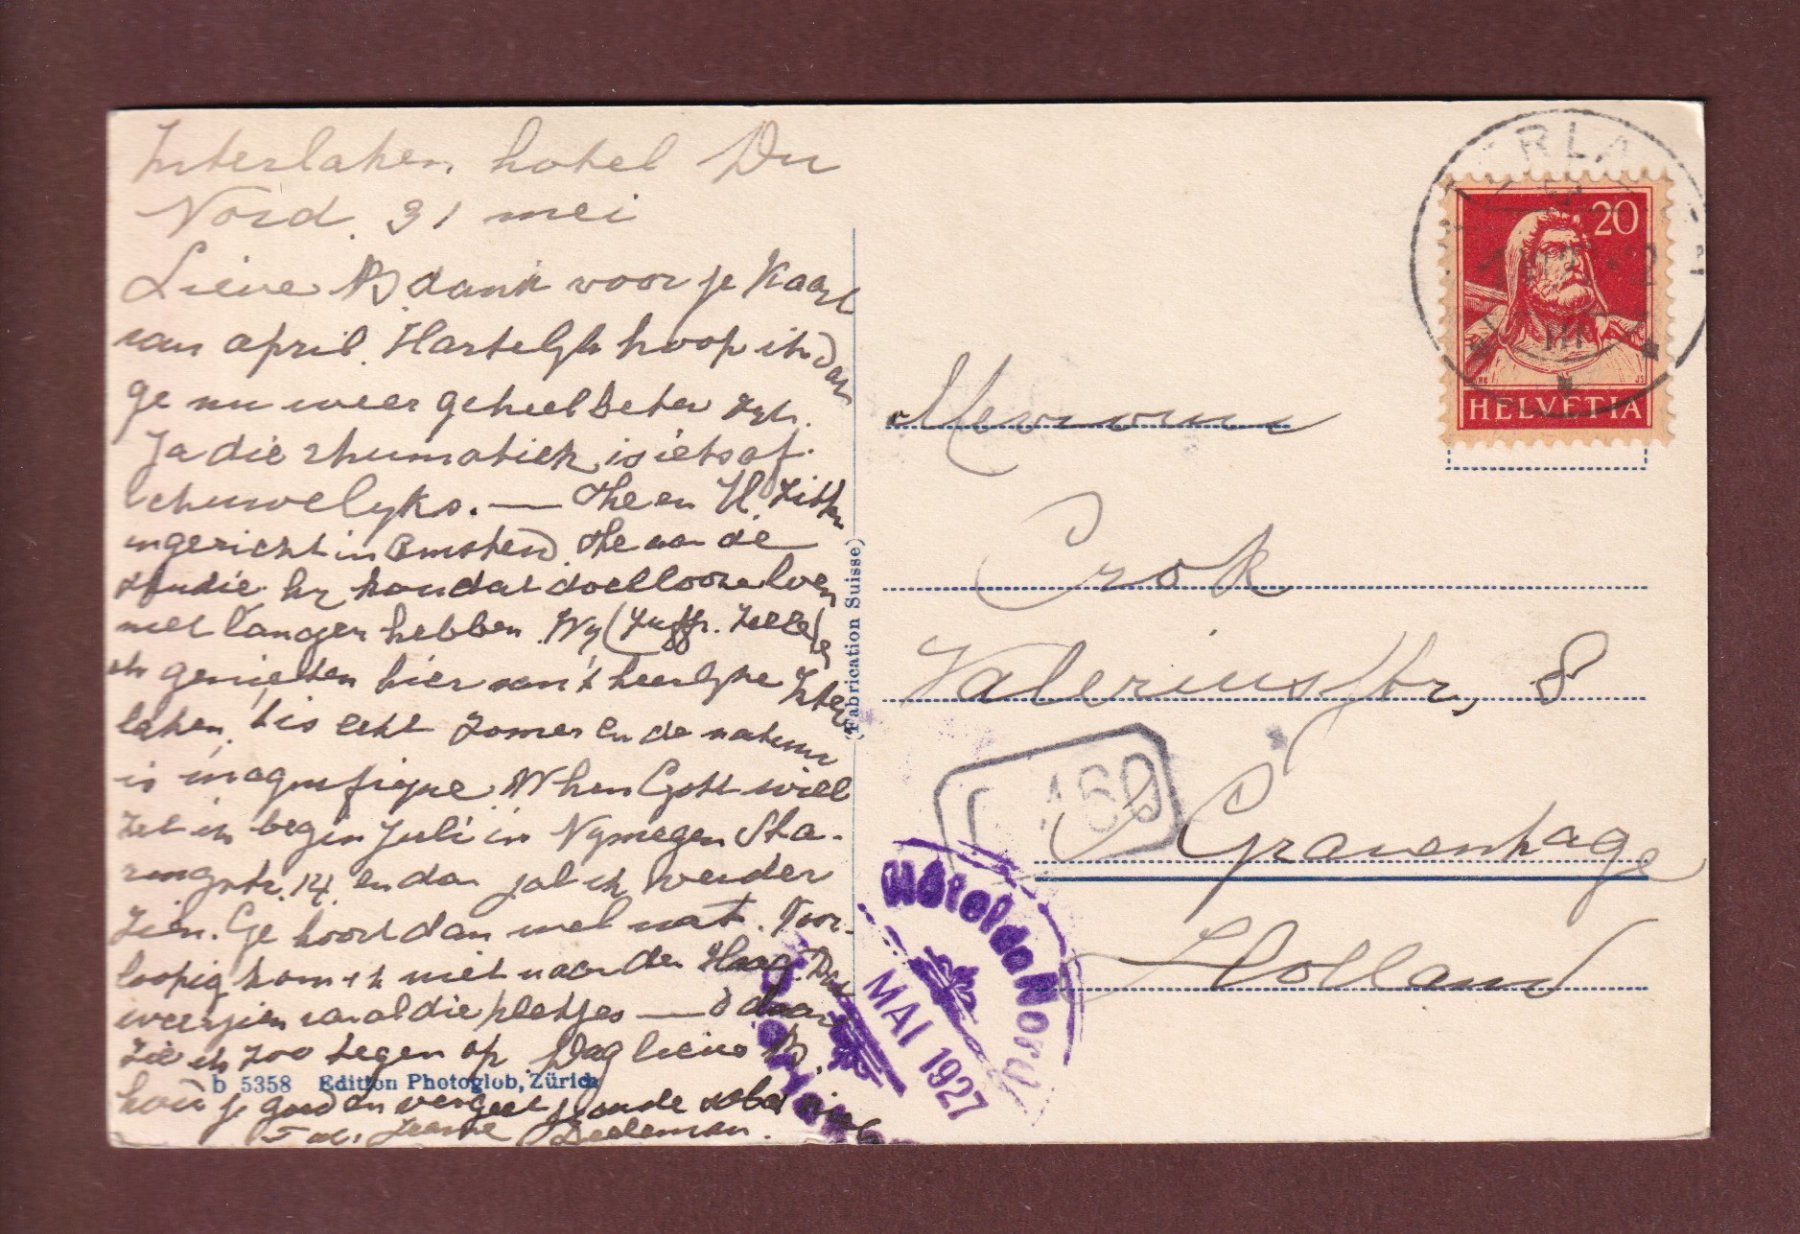 Interlaken, hotel Du
Nord. 31 mei
Lieve B dank voor je Kaart
van april. Hartelyk hoop ik dat
ge nu weer geheel beter zyt.
Ja die rhumatiek is iets af-
schuwelyks. — The en H. zitten
ingericht in Amsterd. The aan de
studie. hy kon dat doellooze leven
niet langer hebben. Wy (Juffr. Zelle) en
ik genieten hier van 't heerlyke Inter
laken, 't is echt zomer en de natuur
is magnifique. When Gott will
zit ik begin Juli in Nymegen Sta-
ringstr. 14. en dan zal ik verder
zien. Ge hoort dan wel wat. Voor-
loopig kom ik niet naar den Haag. Dat
weerzien van al die pletjes — daar
zie ik zoo tegen op. Dag lieve B.
houd je goed en vergeet je oude
Jeanne Dedeman.
b 5358 Edition Photoglob, Zürich
(Fabrication Suisse)
Mevrouw
Crok
Valeriusstr, 8
's Gravenhage
Holland
20
HELVETIA
INTERLAKEN
Hôtel du Nord
MAI 1927
Interlaken